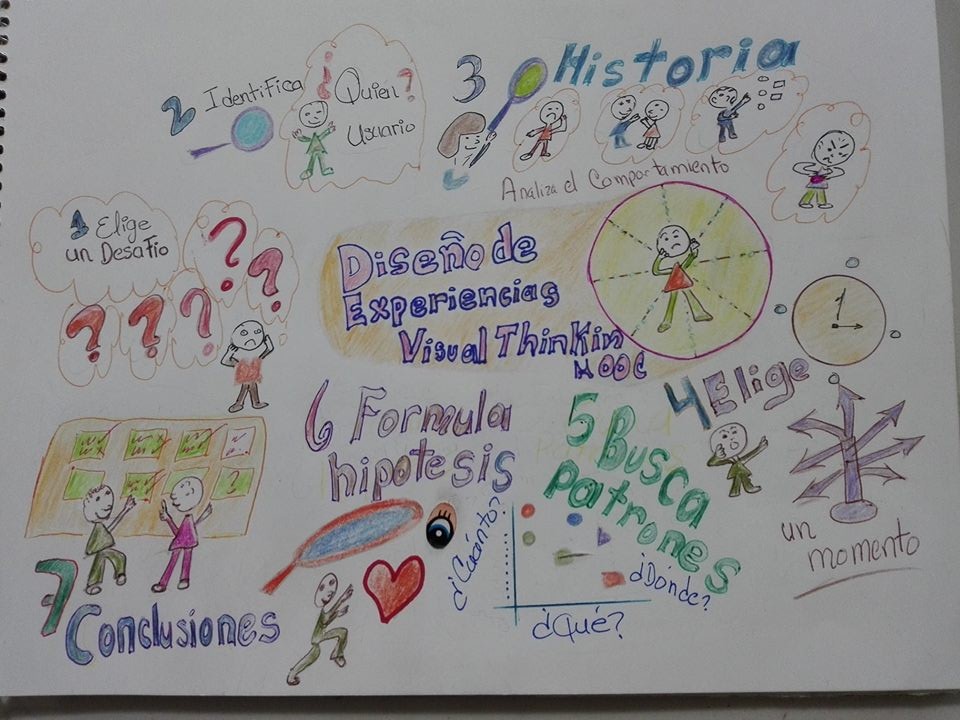 Diseño de
Experiencias
Visual Thinkin
MOOC
1 Elige
un Desafío
? ? ? ? ?
2 Identifica
¿Quien?
Usuario
3 Historia
Analiza el Comportamiento
4 Elige
un
momento
5 Busca
patrones
¿Cuánto?
¿Dónde?
¿Qué?
6 Formula
hipotesis
7
Conclusiones